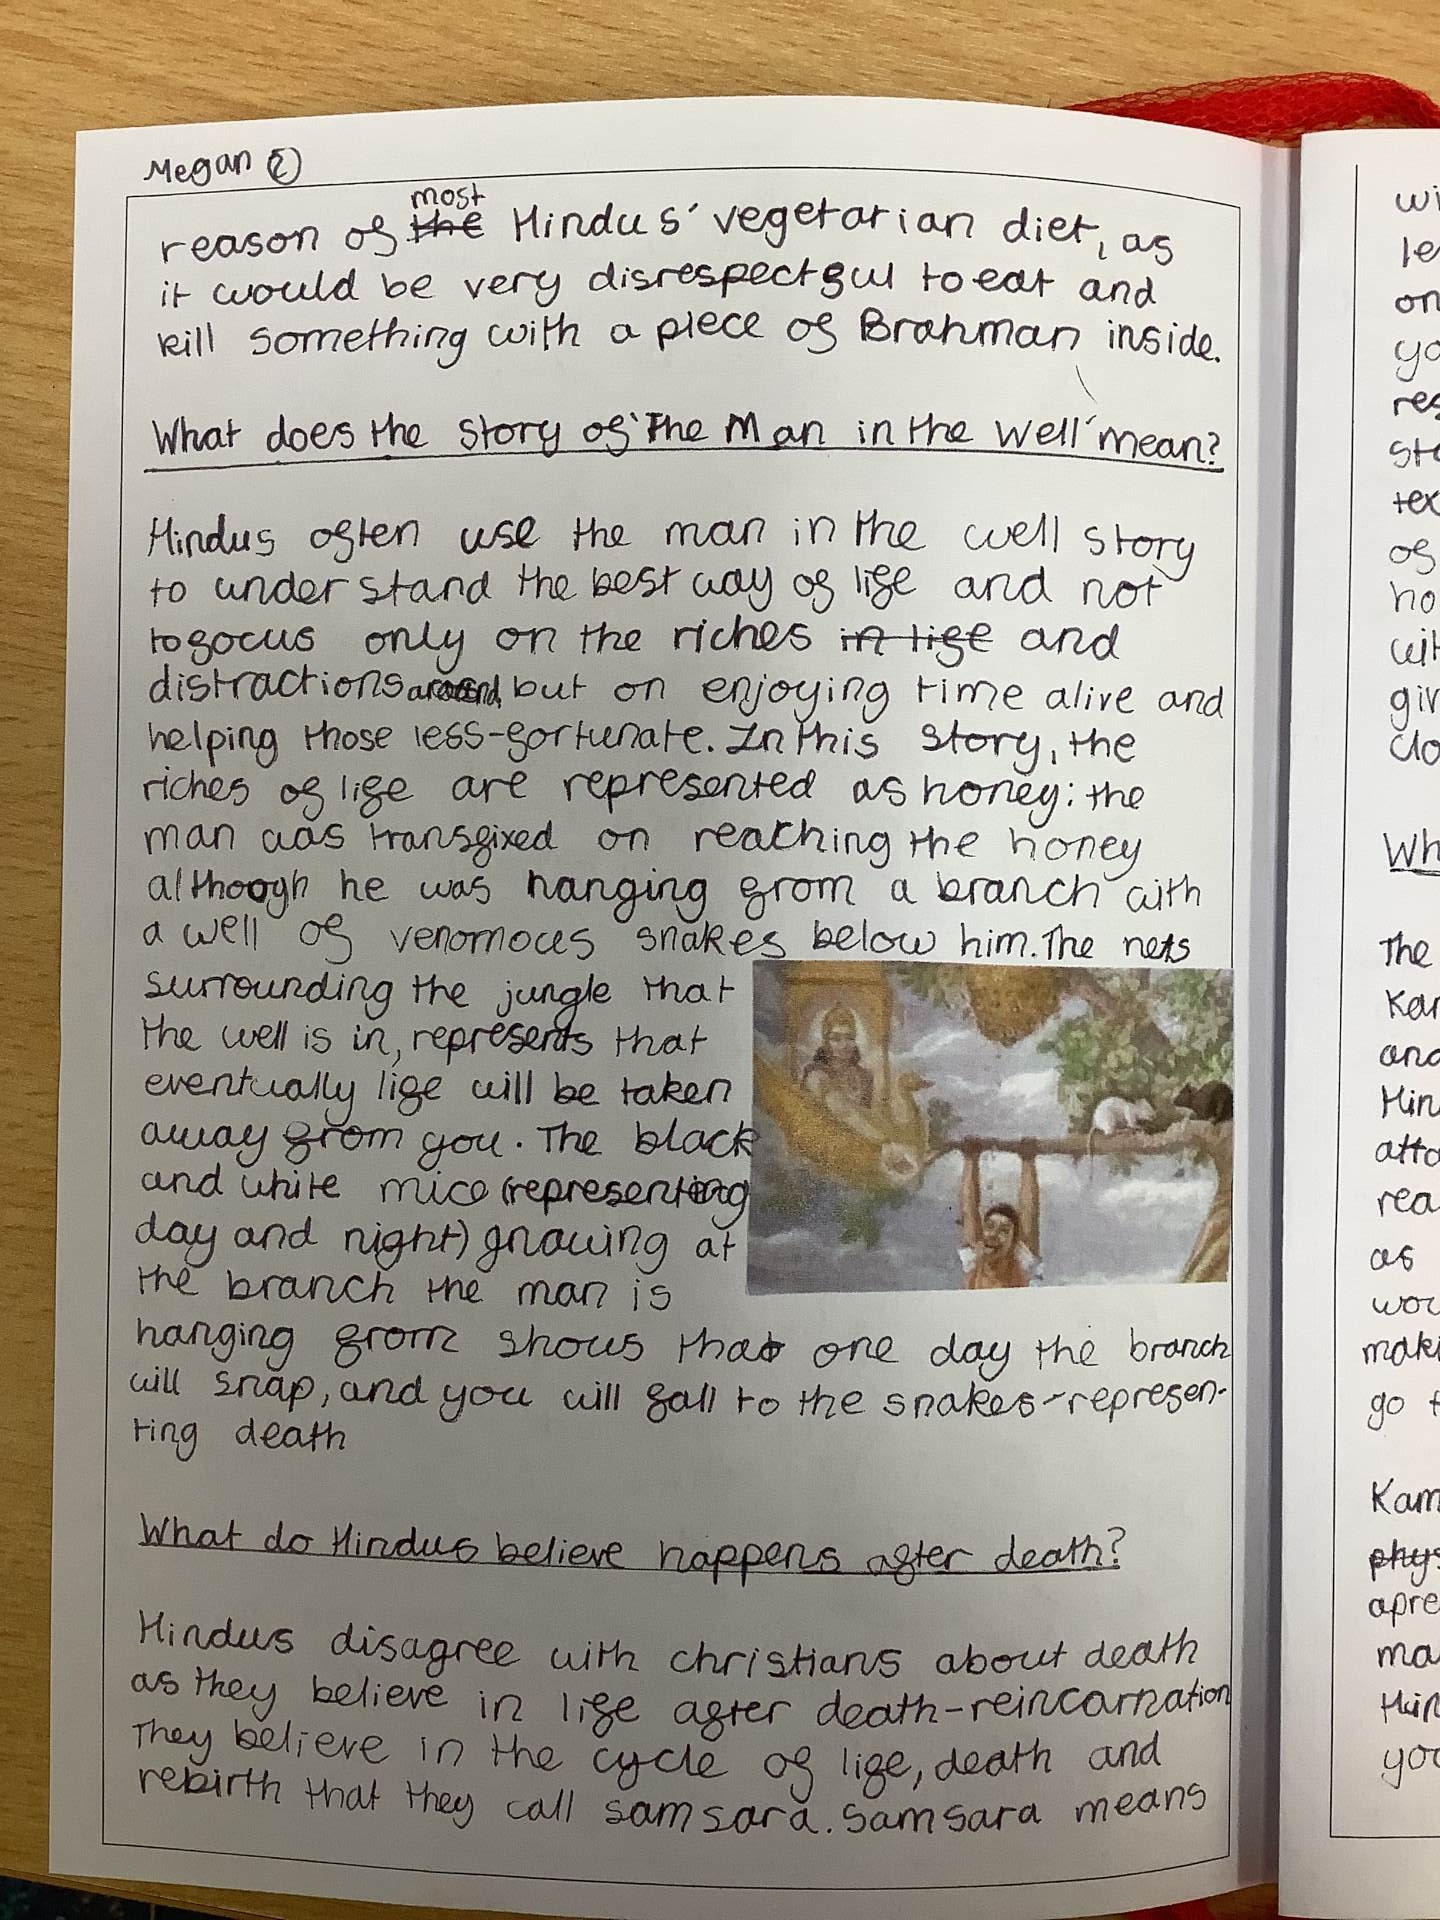 Megan 2
most
reason of the Hindus' vegetarian diet, as
it would be very disrespectful to eat and
kill something with a piece of Brahman inside.
What does the story of 'The Man in the Well' mean?
Hindus often use the man in the well story
to understand the best way of life and not
to focus only on the riches in life and
distractions around, but on enjoying time alive and
helping those less-fortunate. In this story, the
riches of life are represented as honey: the
man was transfixed on reaching the honey
although he was hanging from a branch with
a well of venomous snakes below him. The nets
surrounding the jungle that
the well is in, represents that
eventually life will be taken
away from you. The black
and white mice (representing
day and night) gnawing at
the branch the man is
hanging from shows that one day the branch
will snap, and you will fall to the snakes-represen-
ting death
What do Hindus believe happens after death?
Hindus disagree with christians about death
as they believe in life after death-reincarnation
They believe in the cycle of life, death and
rebirth that they call samsara. Samsara means
on
of
The
and
as
go